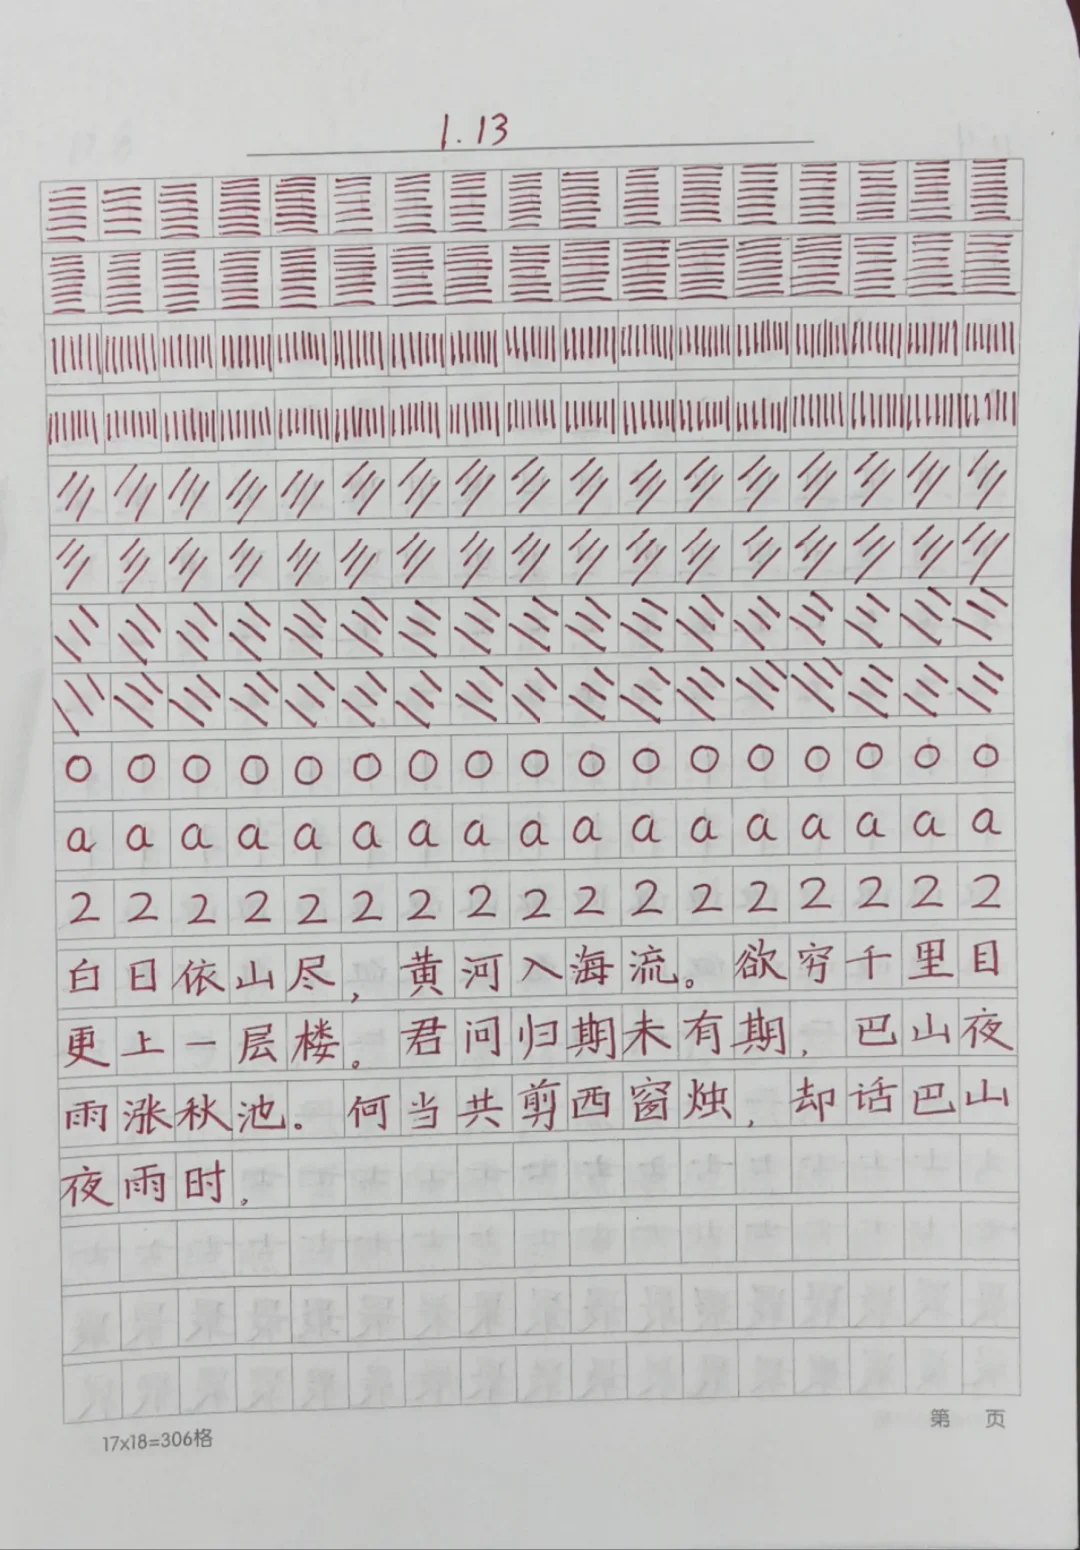 1.13
0 0 0 0 0 0 0 0 0 0 0 0 0 0 0 0 0
a a a a a a a a a a a a a a a a a
2 2 2 2 2 2 2 2 2 2 2 2 2 2 2 2 2
白日依山尽，黄河入海流。欲穷千里目
更上一层楼。君问归期未有期，巴山夜
雨涨秋池。何当共剪西窗烛，却话巴山
夜雨时。
17x18=306格
第 页